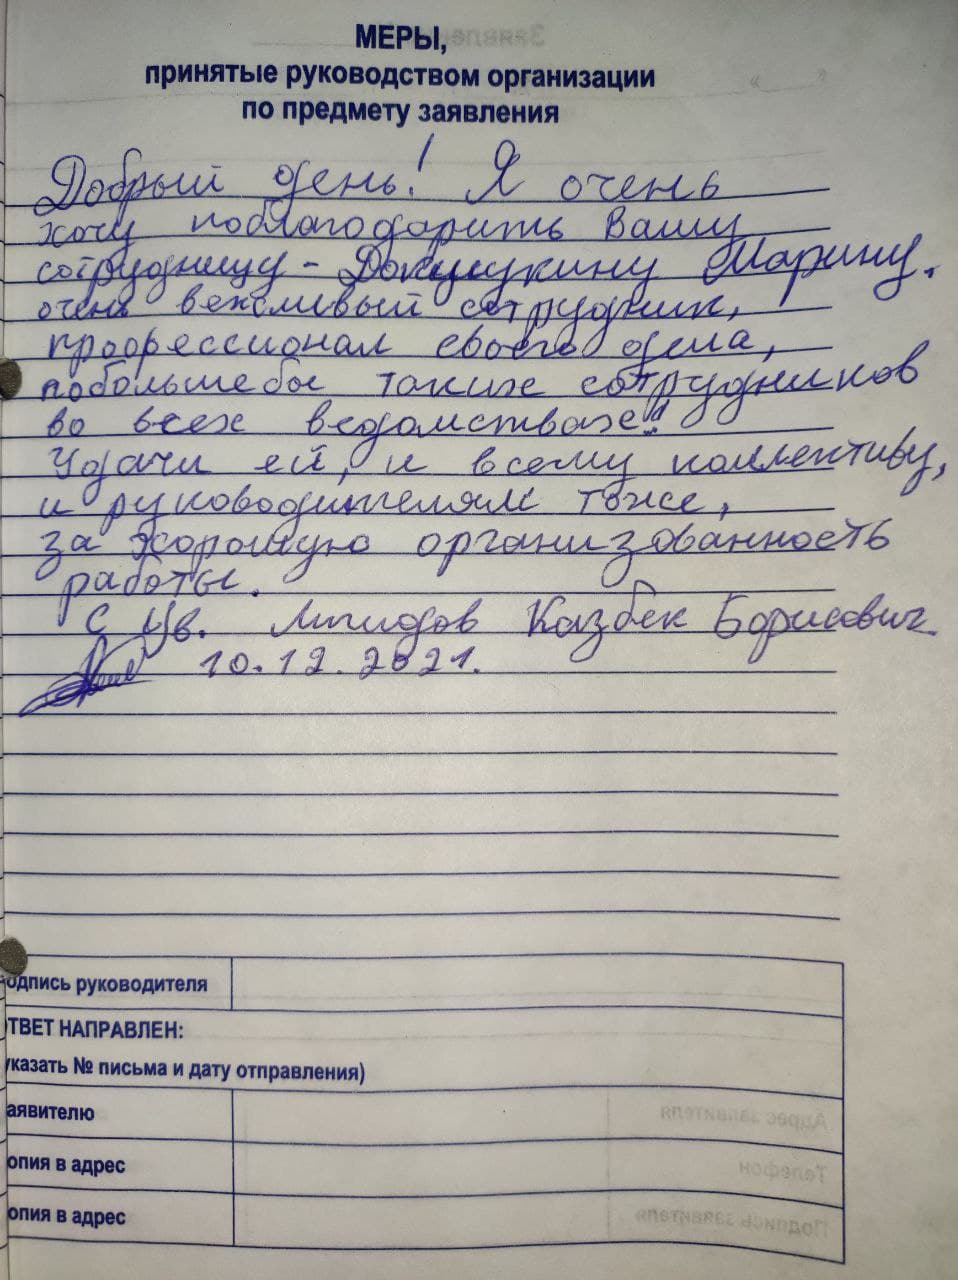 МЕРЫ,
принятые руководством организации
по предмету заявления
Добрый день! Я очень
хочу поблагодарить Вашу
сотрудницу - Докшукину Марину.
очень вежливый сотрудник,
профессионал своего дела,
побольшебы таких сотрудников
во всех ведомствах!
Удачи ей, и всему коллективу,
и руководителям тоже,
за хорошую организованность
работы.
С Ув. Казбек Борисович.
10.12.2021.
одпись руководителя
ТВЕТ НАПРАВЛЕН:
указать № письма и дату отправления)
аявителю
опия в адрес
опия в адрес
Адрес заявителя
Телефон
Подпись заявителя